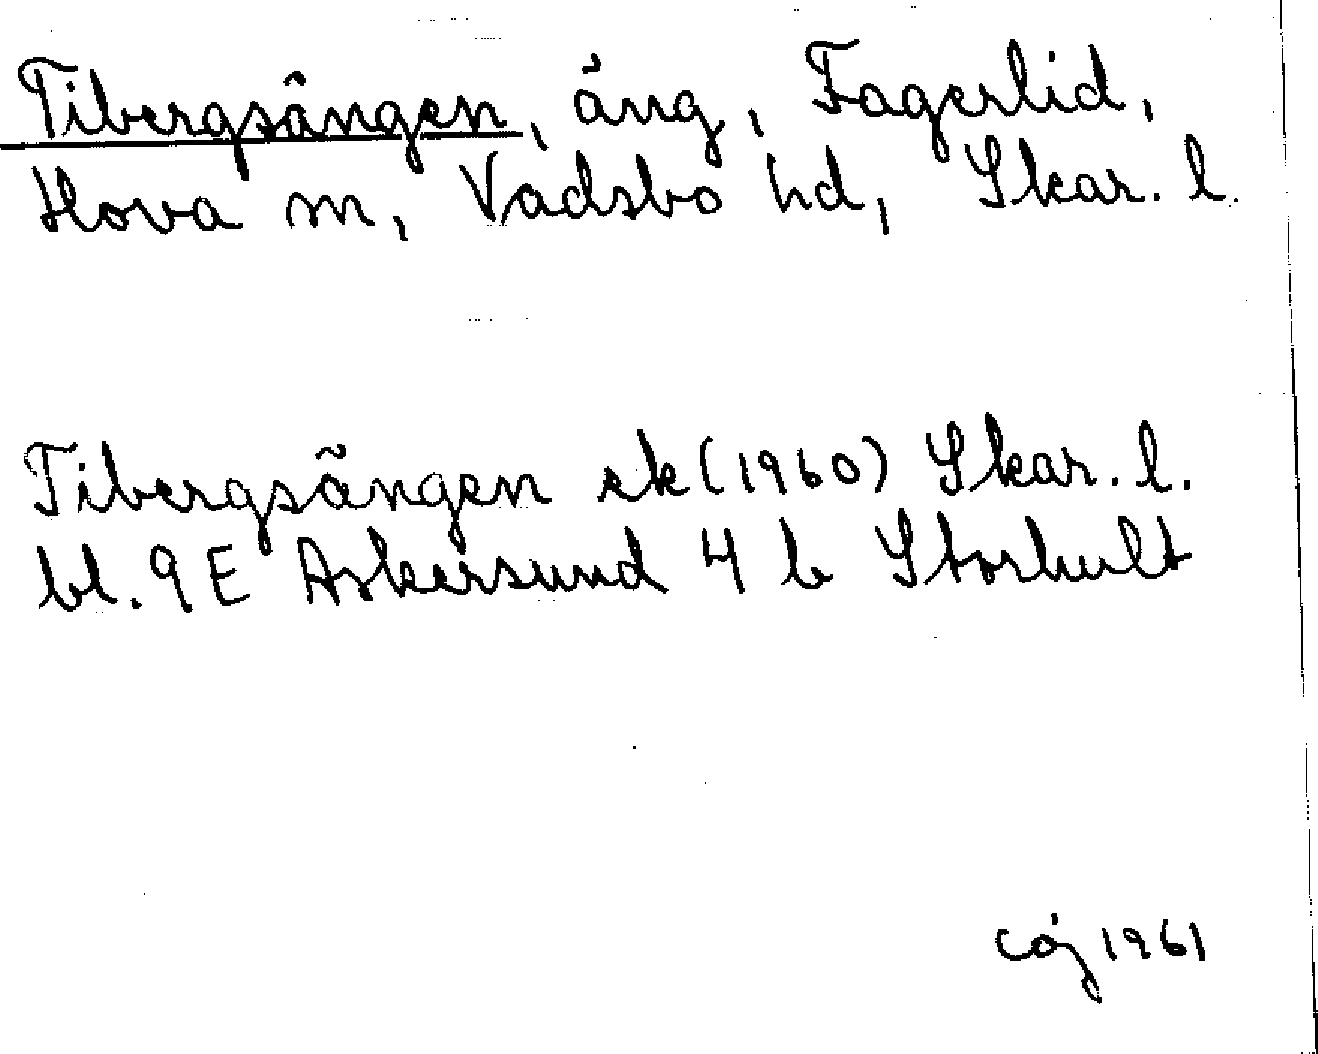 Tibergsängen, äng, Fagerlid,
Hova sn, Vadsbo hd, Skar. l.
Tibergsängen ek (1960) Skar. l.
bl. 9 E Askersund 4 b Storhult
1961